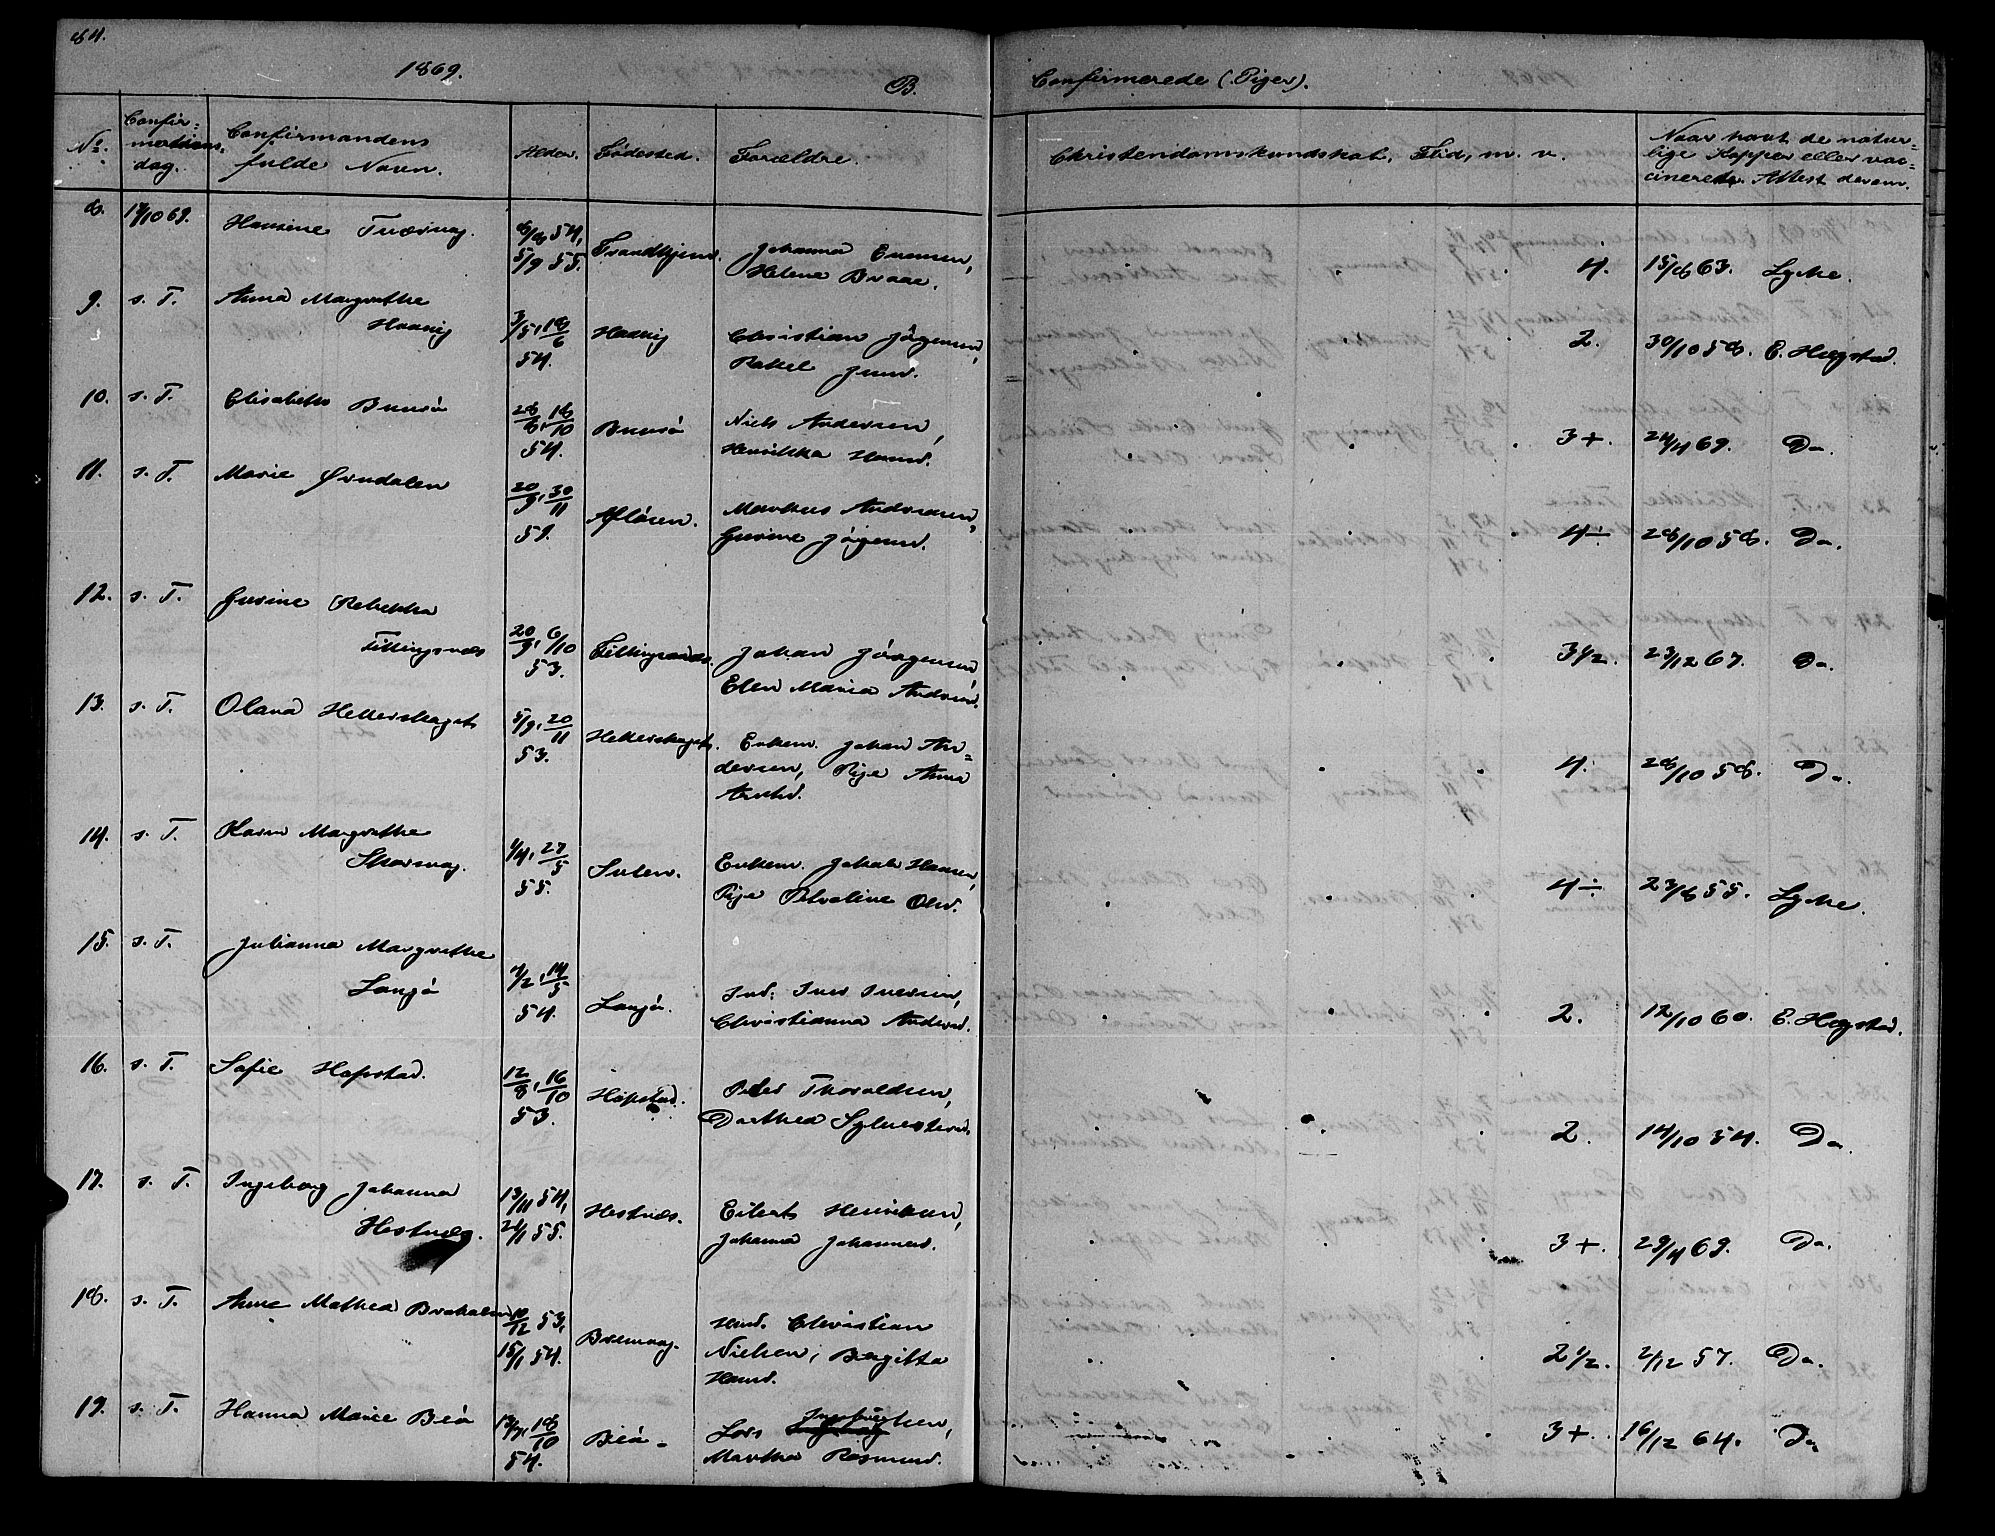 84.
1869.
B.
Confirmerede (Piger).
No.
Confir=
mations=
dag.
Confirmandens
fulde Navn.
Alder.
Födested.
Forældre.
Christendomskundskab, Flid, m. v.
Naar havt de natur=
lige Kopper eller vac=
cinerede. Attest derom.
8. 17/10 69. Hansine 6/8 54,
5/9 55. Trondhjem. Johannes
Helene Braae. 4. 15/8 63. Lyche.
9. s. T. Anna Margrethe
Haavig 3/5, 18/6
54. Haavig Christian Jögensen,
Rakel Jensd. 2. 30/10 58. E. Hegstad.
10. s. T. Elisabeth Buusö 28/8, 18/10
54. Buusö Niels Andersen,
Henrikka Hansd. 3+. 24/4 69. Do.
11. s. T. Marie 20/9, 30/11
51. Aflösen. Markus Andersen,
Gurine Jögensd. 4÷ 28/10 58. Do.
12. s. T. Gurine Rebekka
Fillingsnæs 20/9, 6/10
53. Fillingsnæs. Johan Jörgensen,
Elen Maria Andersd. 3 1/2. 23/12 67. Do.
13. s. T. Olava Hellerskaget 5/9, 20/11
53. Hellerskaget. Enkem. Johan An=
dersen, Pige Anna
Arntsd. 4. 28/10 58. Do.
14. s. T. Karen Margrethe
Skarsvag. 1/4, 27/5
55. Sulen. Enkem. Jakob Hansen,
Pige Petroline Olsd. 4÷. 23/8 55. Lyche.
15. s. T. Julianna Margrethe
Langö 4/2, 14/5
54. Langö. Ind. Iver Iversen,
Christianna Andersd. 2. 12/10 60. E. Hegstad.
16. s. T. Sofie Hopstad. 12/8, 16/10
53. Hopstad. Peder Thoraldsen,
Dorthea Sylvestersd. 2. 14/10 54. Do
17. s. T. Ingeborg Johanna
Hestnæs. 13/11 54,
24/1 55. Hestnæs. Eilert Henriksen,
Johanna Johannesd. 3+. 29/4 69. Do.
18. s. T. Anne Mathea Breholmen 10/12 53,
15/1 54. Brevaag. Huusm. Christian
Nielsen, Bergitta
Hansd. 2 1/2. 2/12 57. Do.
19. s. T. Hanna Marie Beö 13/7, 18/10
54. Beö. Lars Ingebrigtsen,
Martha Rasmusd. 3+. 16/12 64. Do